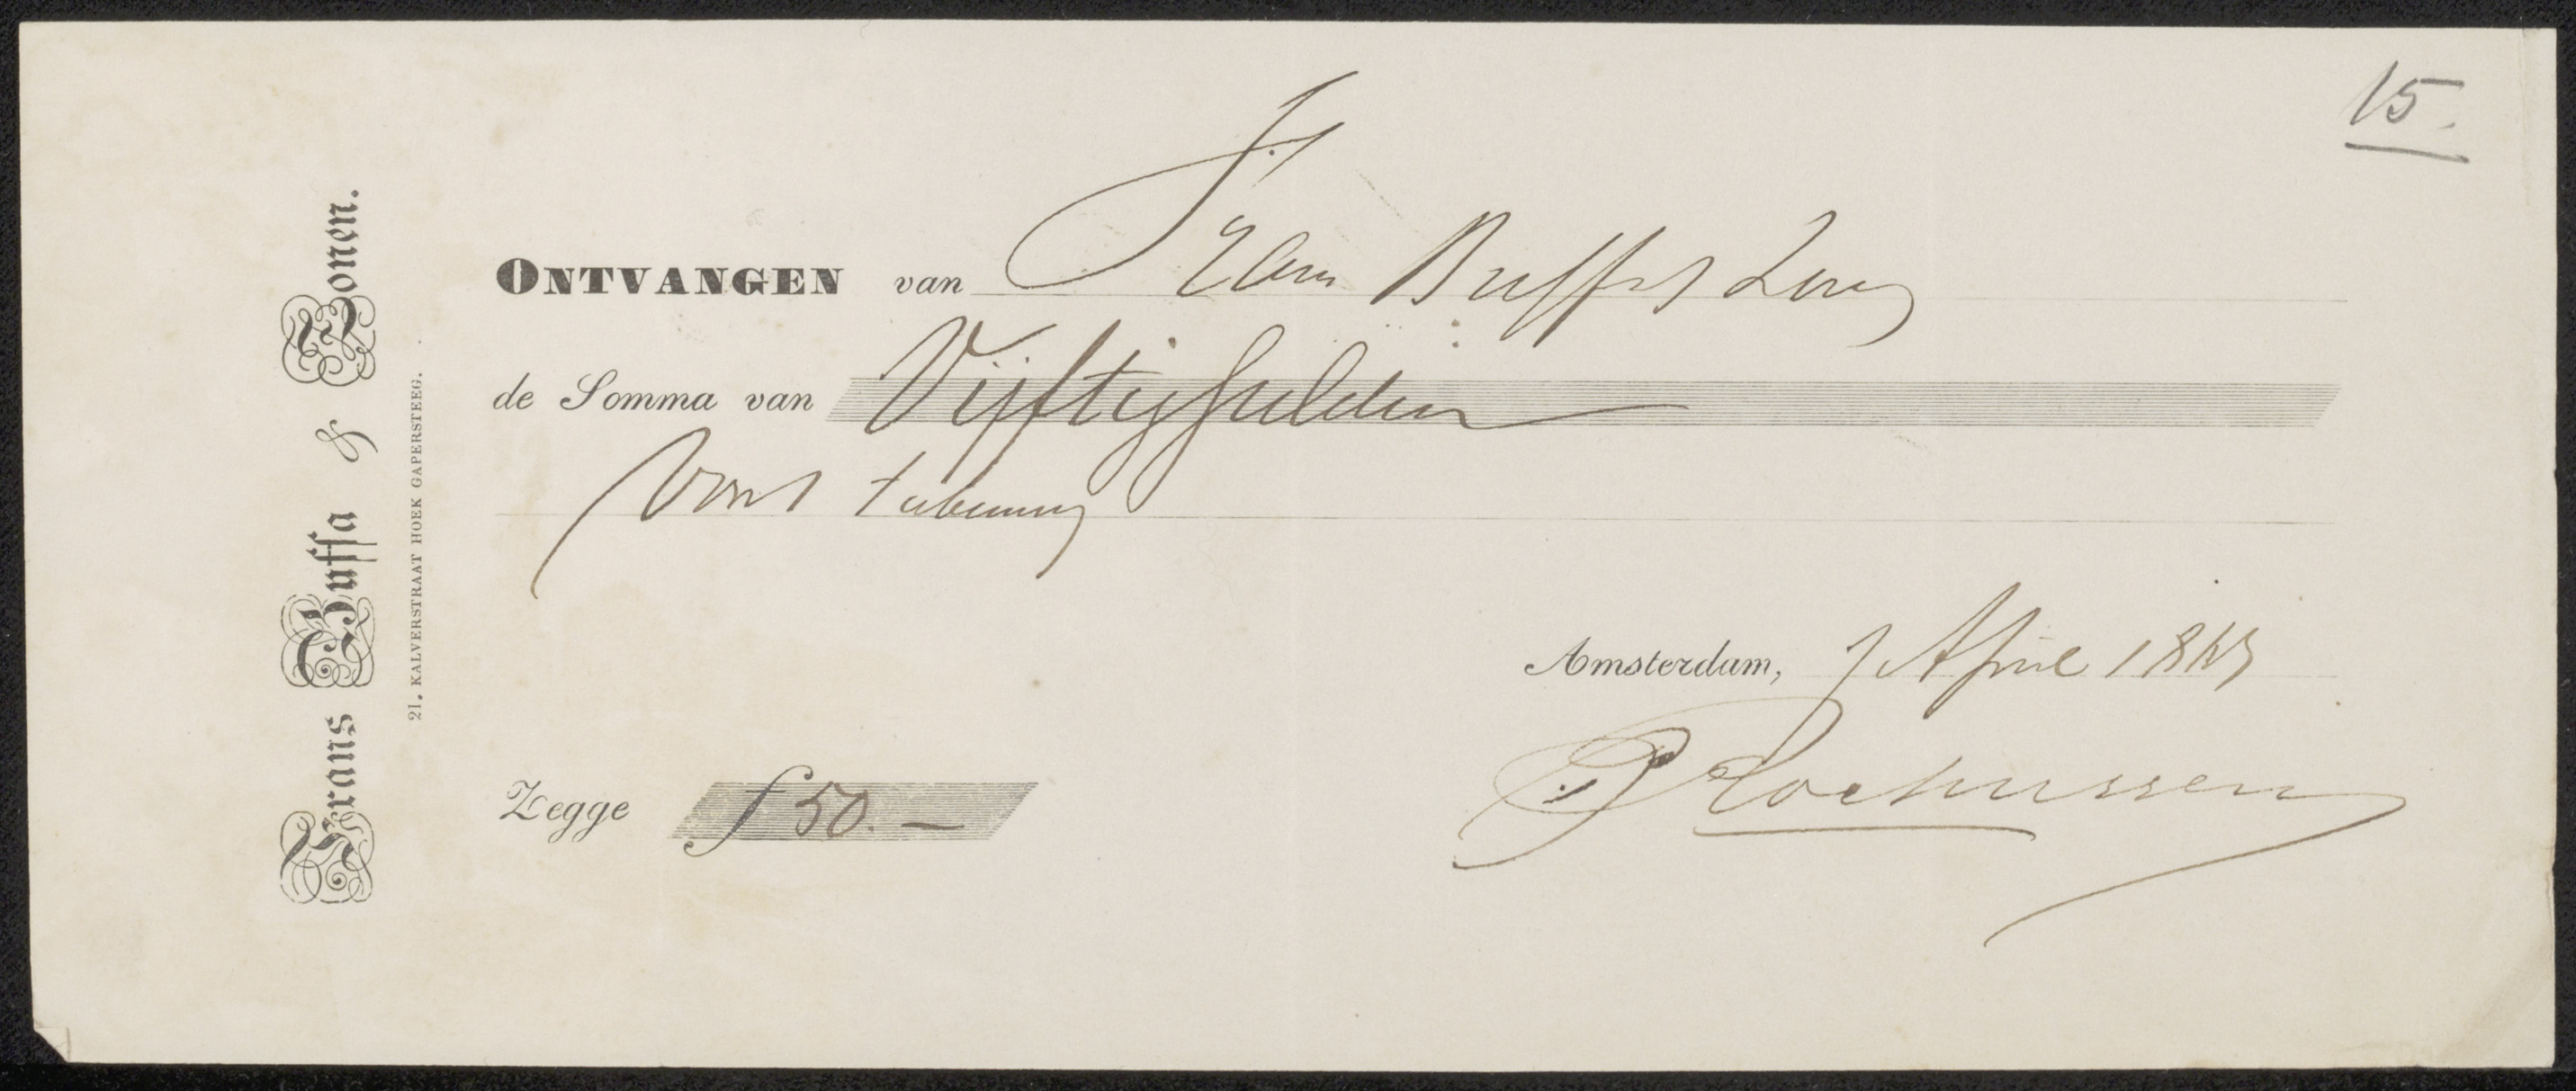 15.
Frans Buffa & Zonen.
21, KALVERSTRAAT HOEK GAPERSTEEG.
ONTVANGEN van Frans Buffa & Zonen
de Somma van Vijftig gulden
voor
Amsterdam, April
Zegge f 50.—
Rochussen